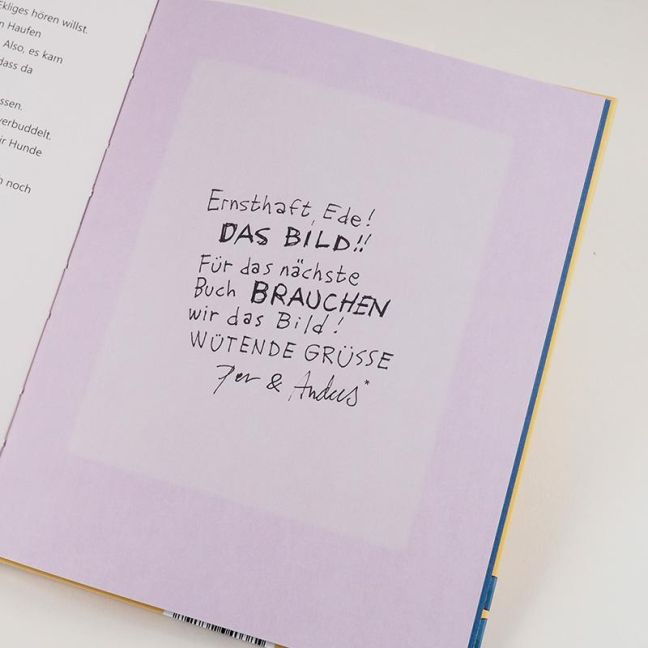 Ekliges hören willst.
n Haufen
Also, es kam
dass da
ssen.
verbuddelt.
ir Hunde
noch
Ernsthaft, Ede!
DAS BILD!!
Für das nächste
Buch BRAUCHEN
wir das Bild!
WÜTENDE GRÜSSE
Per & Anders*